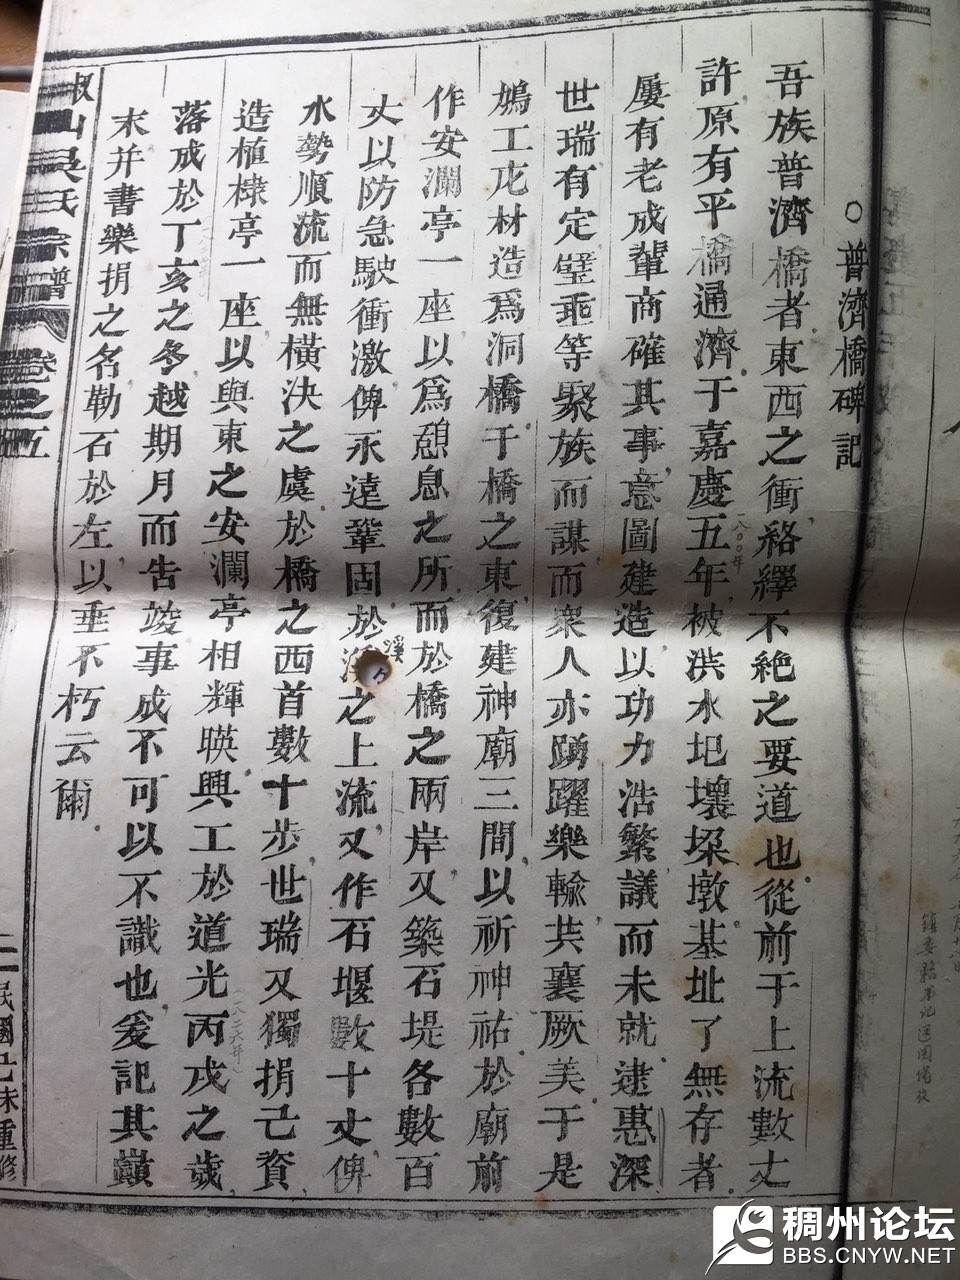 普濟橋碑記
吾族普濟橋者東西之衝絡繹不絶之要道也從前于上流數丈
許原有平橋通濟于嘉慶五年被洪水圯壞垜墩基址了無存者
一八〇〇年
屢有老成輩商確其事意圖建造以功力浩繁議而未就逮惠深
世瑞有定璧乖等聚族而謀而衆人亦踴躍樂輸共襄厥美于是
鳩工庀材造爲洞橋于橋之東復建神廟三間以祈神祐於廟前
作安瀾亭一座以爲憩息之所而於橋之兩岸又築石堤各數百
丈以防急駛衝激俾永遠鞏固於溪之上流又作石堰數十丈俾
溪
水勢順流而無橫決之虞於橋之西首數十步世瑞又獨捐己資
造植棣亭一座以與東之安瀾亭相輝暎興工於道光丙戌之歲
(一八二六年)
落成於丁亥之冬越期月而告竣事成不可以不識也爰記其巔
末并書樂捐之名勒石於左以垂不朽云爾
山吳氏宗譜 卷之五 民國己未重修
稠州论坛
BBS.CNYW.NET